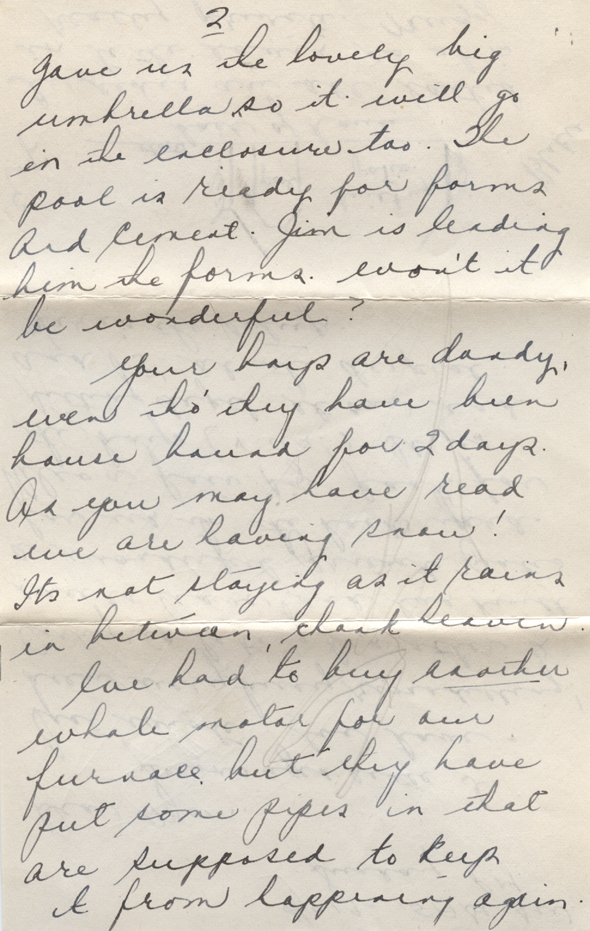 2
gave us the lovely big
umbrella, so it will go
in the enclosure too. The
pool is ready for forms
and cement. Jim is lending
him the forms. won't it
be wonderful?
Your boys are dandy,
even tho' they have been
house bound for 2 days.
As you may have read
we are having snow!
Its not staying as it rains
in between, thank heaven.
Ive had to buy another
whole motor for our
furnace but they have
put some pipes in that
are supposed to keep
it from happening again.